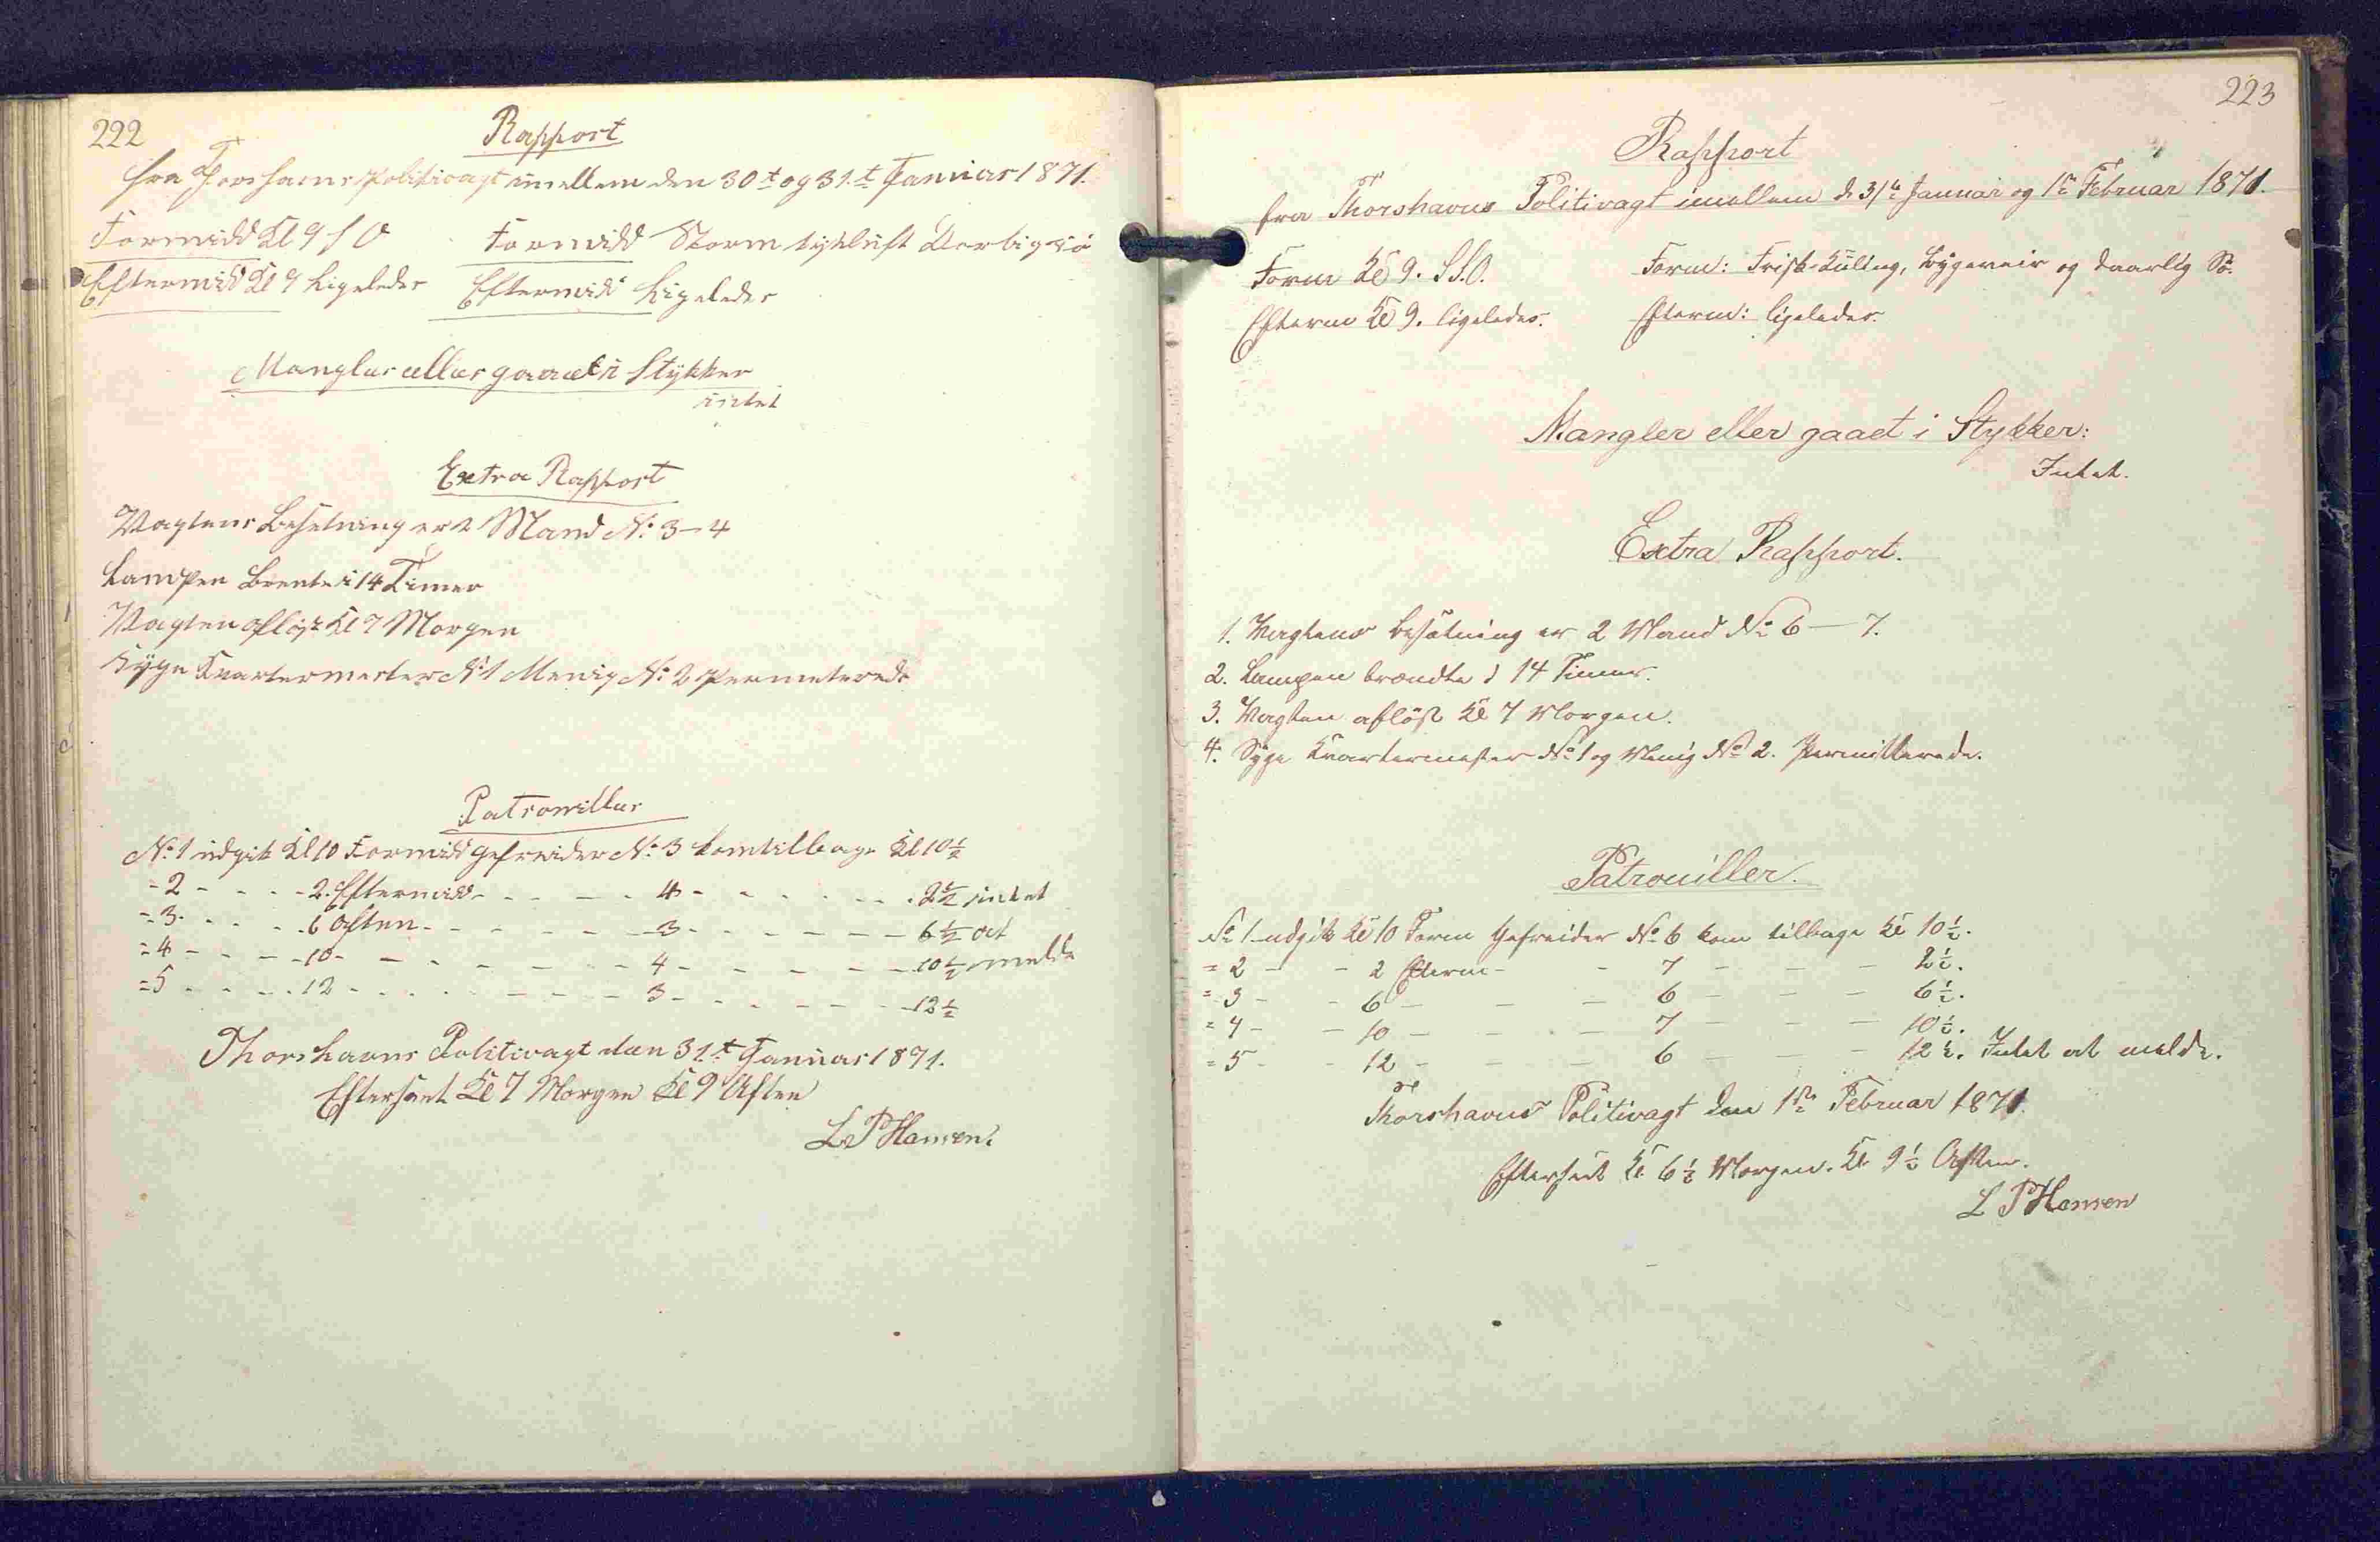 222
Rapport
fra Torshavns Politivagt imellem den 30t og 31.t Januar 1871.
Formidd Kl 9 S O Formidd Storm tykluft Urolig sö
Eftermidd Kl 9 Ligeledes Eftermidd Ligeledes
Mangler eller gaaet i Stykker
intet
Extra Rapport
Vagtens Besetning er 2 Mand No 3-4
Lampen Brente i 14 Timer
Vagten aflöst Kl 7 Morgen
Syge Kvartermester No 1 Menig No 2 Permeterede
Patrouiller
No 1 udgik Kl 10 Formidd gefreider No 3 kom tilbage Kl 10½
= 2 - - - - 2. Eftermidd - - - - 4 - - - - - - 2½ intet
= 3 - - - - 6 Aften - - - - - - 3 - - - - - - 6½ at
= 4 - - - - 10 - - - - - - 4 - - - - - - 10½ melde
= 5 - - - - 12 - - - - - - 3 - - - - - - 12½
Thorshavns Politivagt den 31t Januar 1871.
Efterseet Kl 7 Morgen Kl 9 Aften
L P Hansen.
223
Rapport
fra Thorshavns Politivagt imellem d 31te Januar og 1ste Februar 1871.
Form Kl 9. S.S.O. Form: Frisk-Kuling, Bygeveir og daarlig Sö.
Efterm Kl 9. ligeledes. Efterm: ligeledes.
Mangler eller gaaet i Stykker:
Intet.
Extra Rapport.
1. Vagtens Besætning er 2 Mand No 6 — 7.
2. Lampen brændte i 14 Timer.
3. Vagten aflöst Kl 7 Morgen.
4. Syge Kvartermester No 1 og Menig No 2. Permitterede.
Patrouiller.
No 1 udgik Kl 10 Form Gefreider No 6 kom tilbage Kl 10½.
= 2 - - 2 Efterm - - 7 - - - 2½.
= 3 - - 6 - - - 6 - - - 6½.
= 4 - - 10 - - - 7 - - - 10½.
= 5 - - 12 - - - 6 - - - 12½. Intet at melde.
Thorshavns Politivagt den 1ste Februar 1871.
Efterseet Kl. 6½ Morgen. Kl. 9½ Aften.
L P Hansen